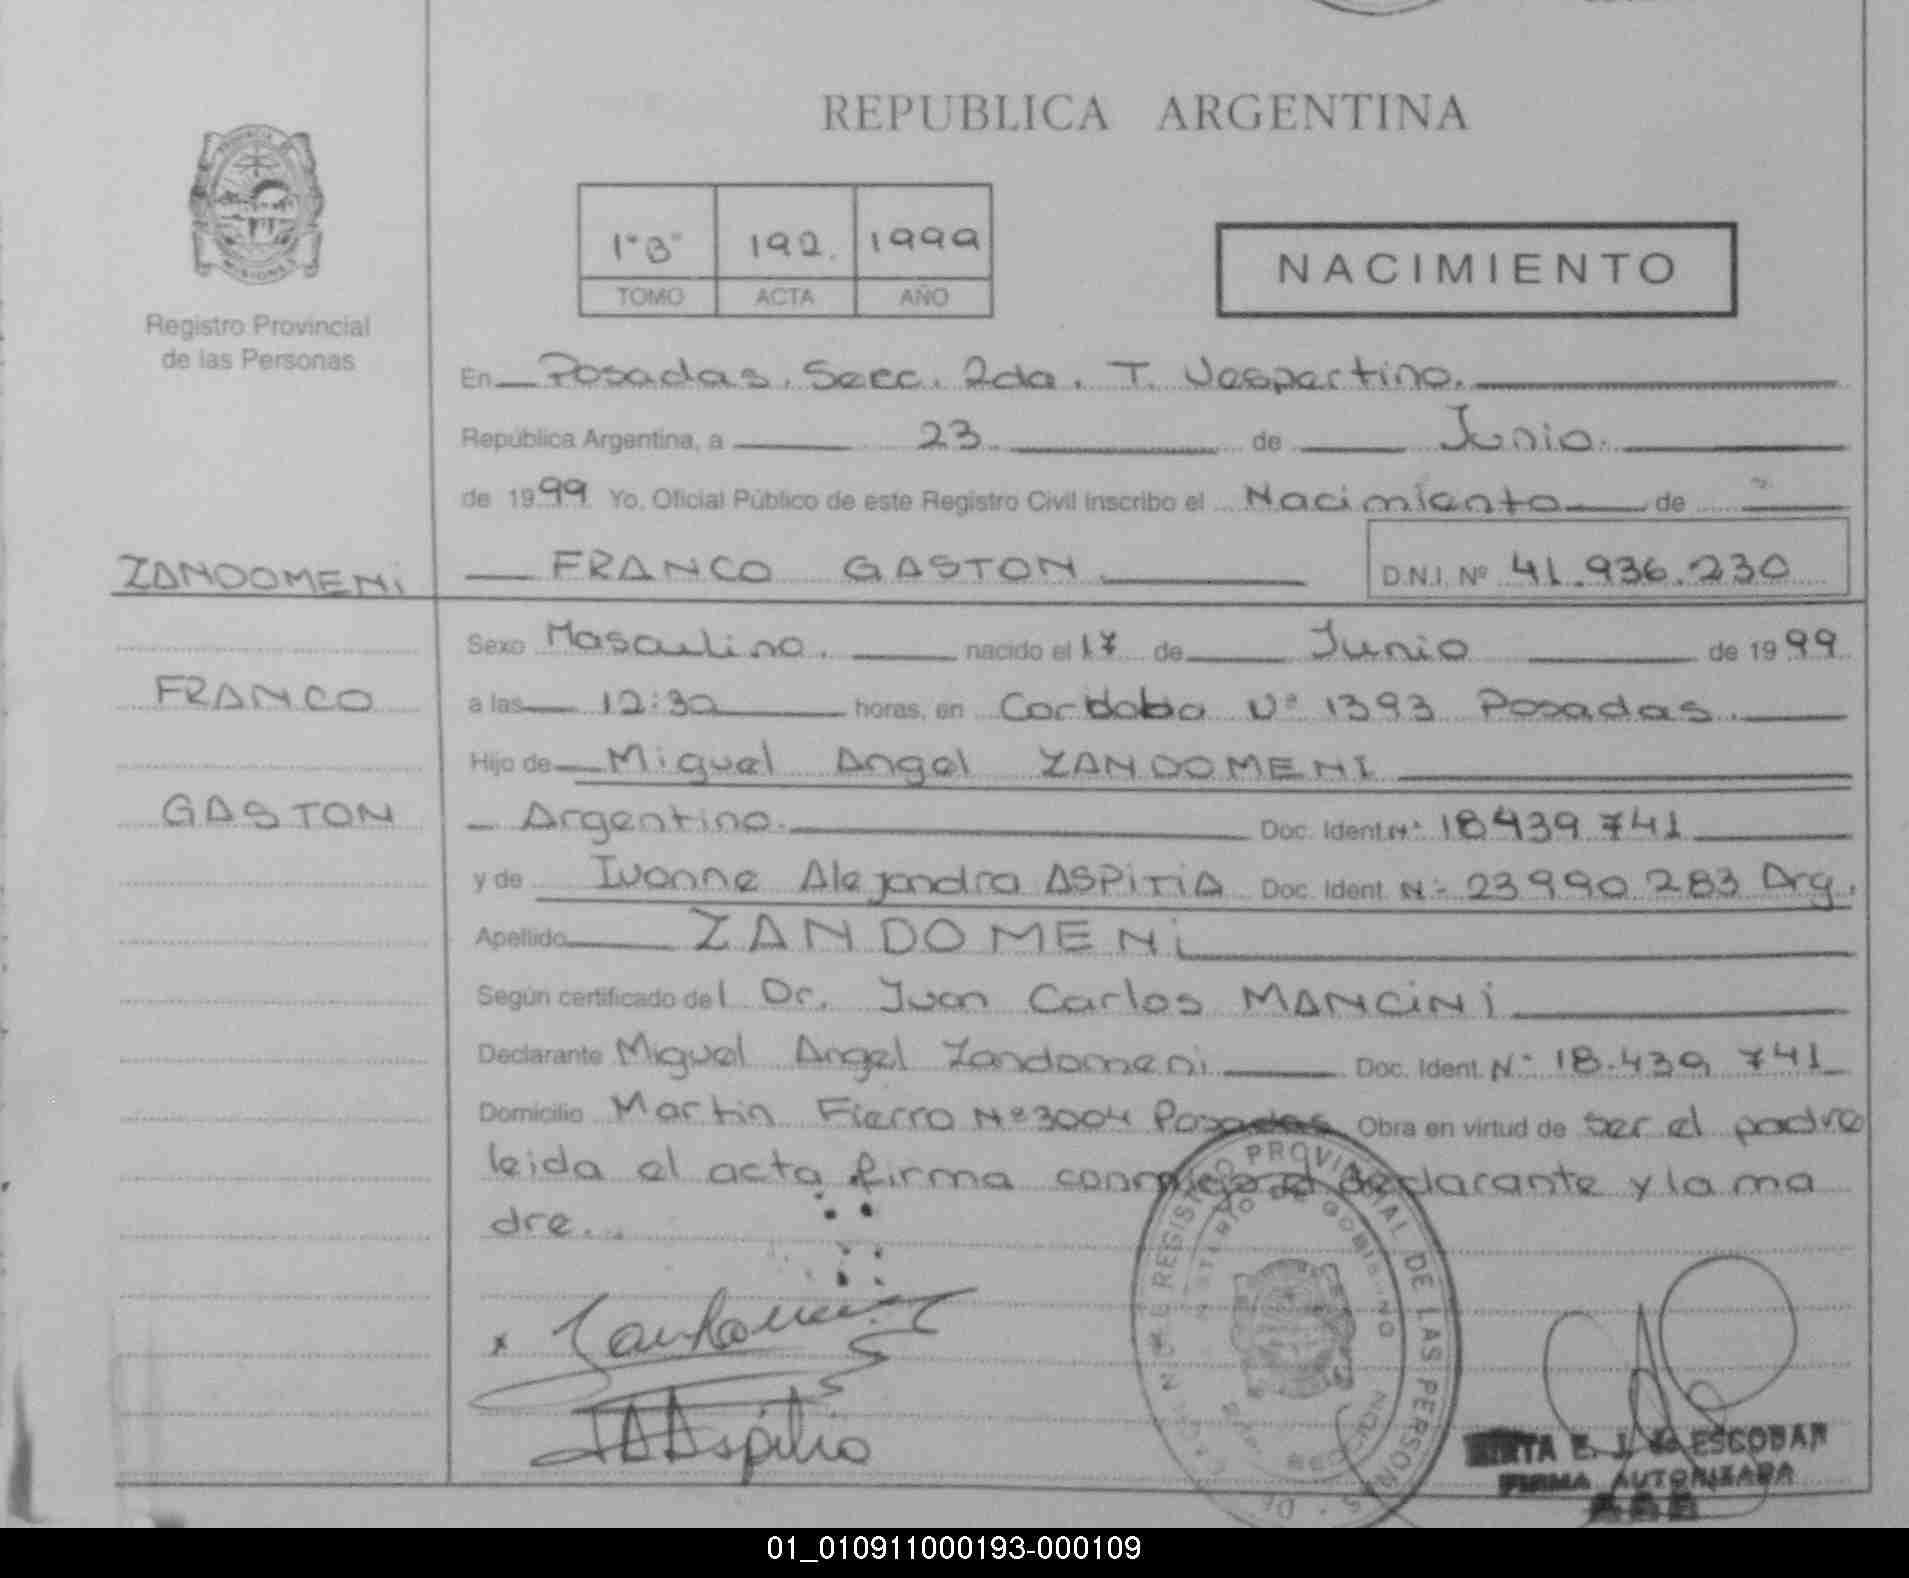 REPUBLICA ARGENTINA
PROVINCIA
MISIONES
Registro Provincial
de las Personas
1"B" 192. 1999
TOMO ACTA AÑO
NACIMIENTO
En Posadas. Secc. 2da. T. Vespertino.
República Argentina, a 23 de Junio.
de 1999 Yo, Oficial Público de este Registro Civil inscribo el Nacimiento de
ZANDOMENi
FRANCO GASTON D.N.I. Nº 41.936.230
Sexo Masculino. nacido el 17 de Junio de 1999
FRANCO
a las 12:30 horas, en Cordoba Nº 1393 Posadas.
Hijo de Miguel Angel ZANDOMENI
GASTON
Argentino. Doc. Ident. Nº 18439741
y de Ivonne Alejandra ASPITIA Doc. Ident. Nº 23990283 Arg.
Apellido ZANDOMENi
Según certificado del Dr. Juan Carlos MANCiNi
Declarante Miguel Angel Zandomeni Doc. Ident. Nº 18.439.741
Domicilio Martin Fierro Nº 3004 Posadas Obra en virtud de ser el padre
leida el acta firma conmigo el declarante y la ma
dre.
REGISTRO PROVINCIAL DE LAS PERSONAS
GOBIERNO
ESCOBAR
FIRMA AUTORIZADA
01_010911000193-000109